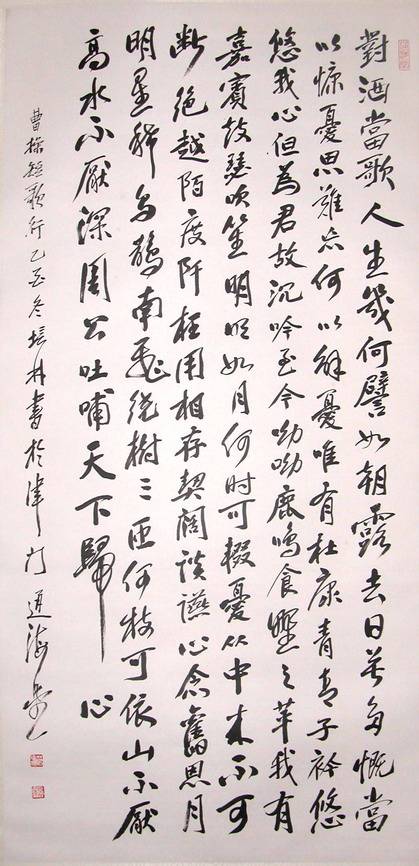 對酒當歌人生幾何譬如朝露去日苦多慨當
以慷憂思難忘何以解憂唯有杜康青青子衿悠
悠我心但為君故沉吟至今呦呦鹿鳴食野之苹我有
嘉賓鼓瑟吹笙明明如月何時可掇憂从中来不可
断絕越陌度阡枉用相存契闊談讌心念舊恩月
明星稀烏鵲南飛繞樹三匝何枝可依山不厭
高水不厭深周公吐哺天下歸心
曹操短歌行乙酉冬培林書於津門